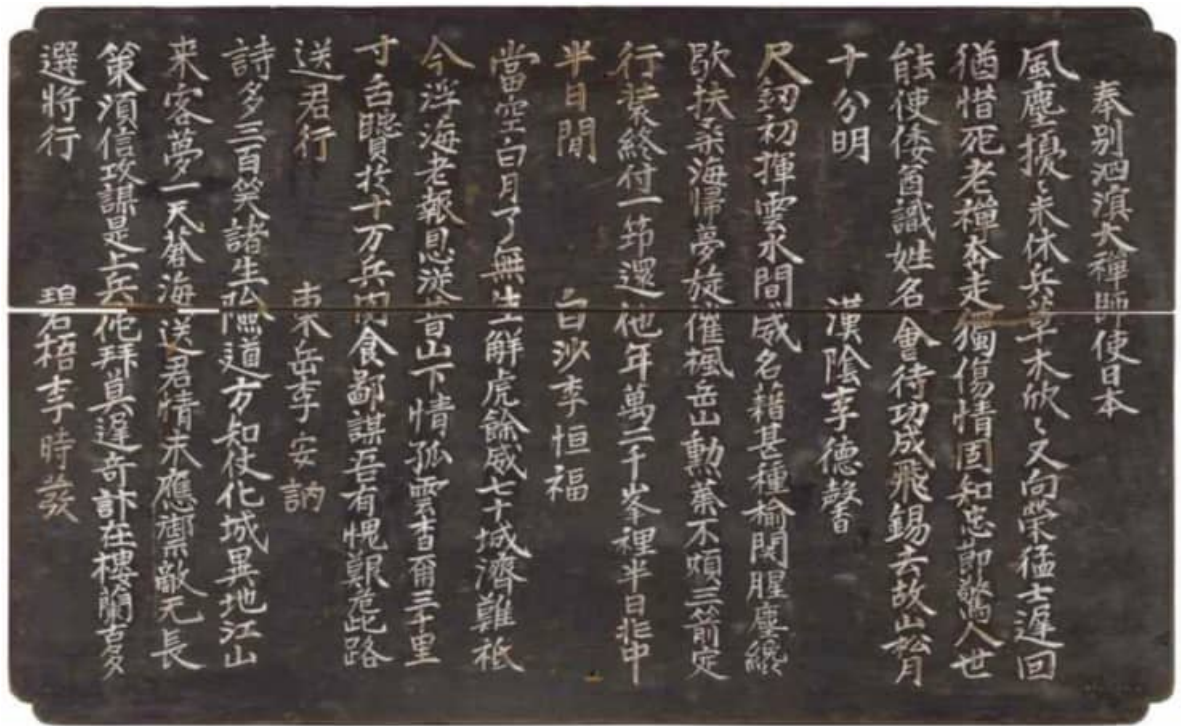 奉別泗溟大禪師使日本
風塵擾〻未休兵草木欣〻又向榮猛士遲回
猶惜死老禪奔走獨傷情固知忠節驚人世
能使倭酋識姓名會待功成飛錫去故山松月
十分明 漢陰李德馨
尺釰初揮雲水間威名藉甚種榆関腥塵纔
歇扶桑海歸夢旋催楓岳山勳業不煩三箭定
行裝終付一笻還他年萬二千峯裡半日非中
半日閒 白沙李恒福
當空白月了無生解虎餘威七十城濟難祗
今浮海老報恩從昔山下情孤雲杳爾三千里
寸舌賢於十万兵肉食鄙謀吾有愧艱危此路
送君行 東岳李安訥
詩多三百笑諸生道方知仗化城異地江山
来客夢一天蒼海送君情未應禦敵无長
策須信攻謀是上兵佗拜莫遑奇計在樓蘭古多
選將行 碧梧李時發